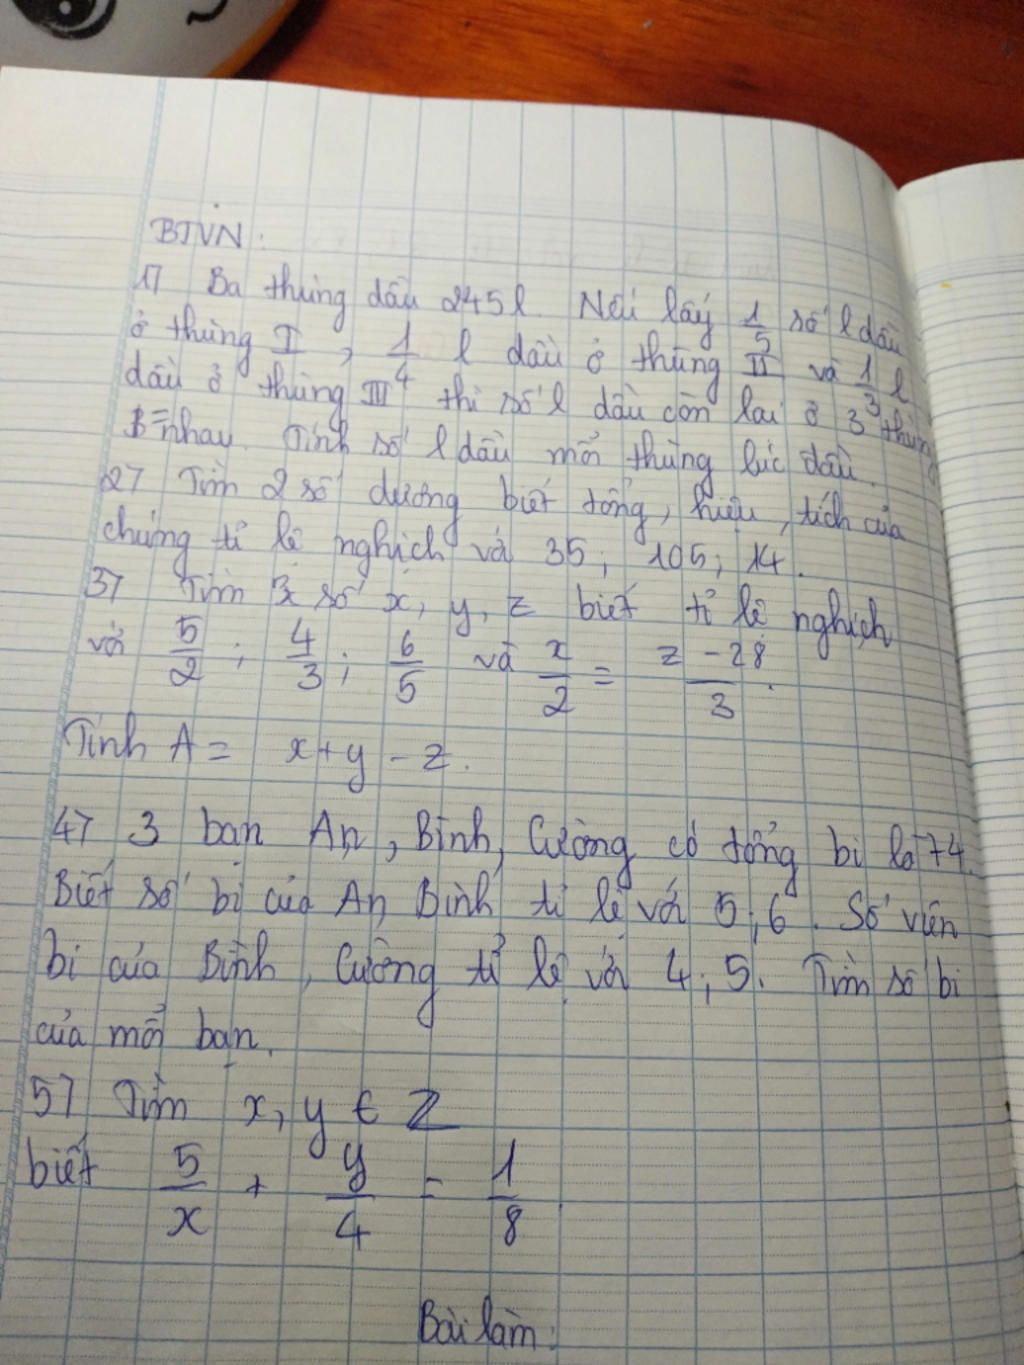 BTVN:
1) Ba thùng dầu 245l. Nếu lấy 1/5 số l dầu
ở thùng I, 1/4 l dầu ở thùng II và 1/3 l
dầu ở thùng III thì số l dầu còn lại ở 3 thùng
= nhau. Tính số l dầu mỗi thùng lúc đầu.
2) Tìm 2 số dương biết tổng, hiệu, tích của
chúng tỉ lệ nghịch với 35; 105; 14.
3) Tìm 3 số x, y, z biết tỉ lệ nghịch
với 5/2; 4/3; 6/5 và x/2 = z - 28/3.
Tính A = x + y - z.
4) 3 bạn An, Bình, Cường có tổng bi là 74.
Biết số bi của An, Bình tỉ lệ với 5; 6. Số viên
bi của Bình, Cường tỉ lệ với 4; 5. Tìm số bi
của mỗi bạn.
5) Tìm x, y ∈ Z
biết 5/x + y/4 = 1/8
Bài làm: